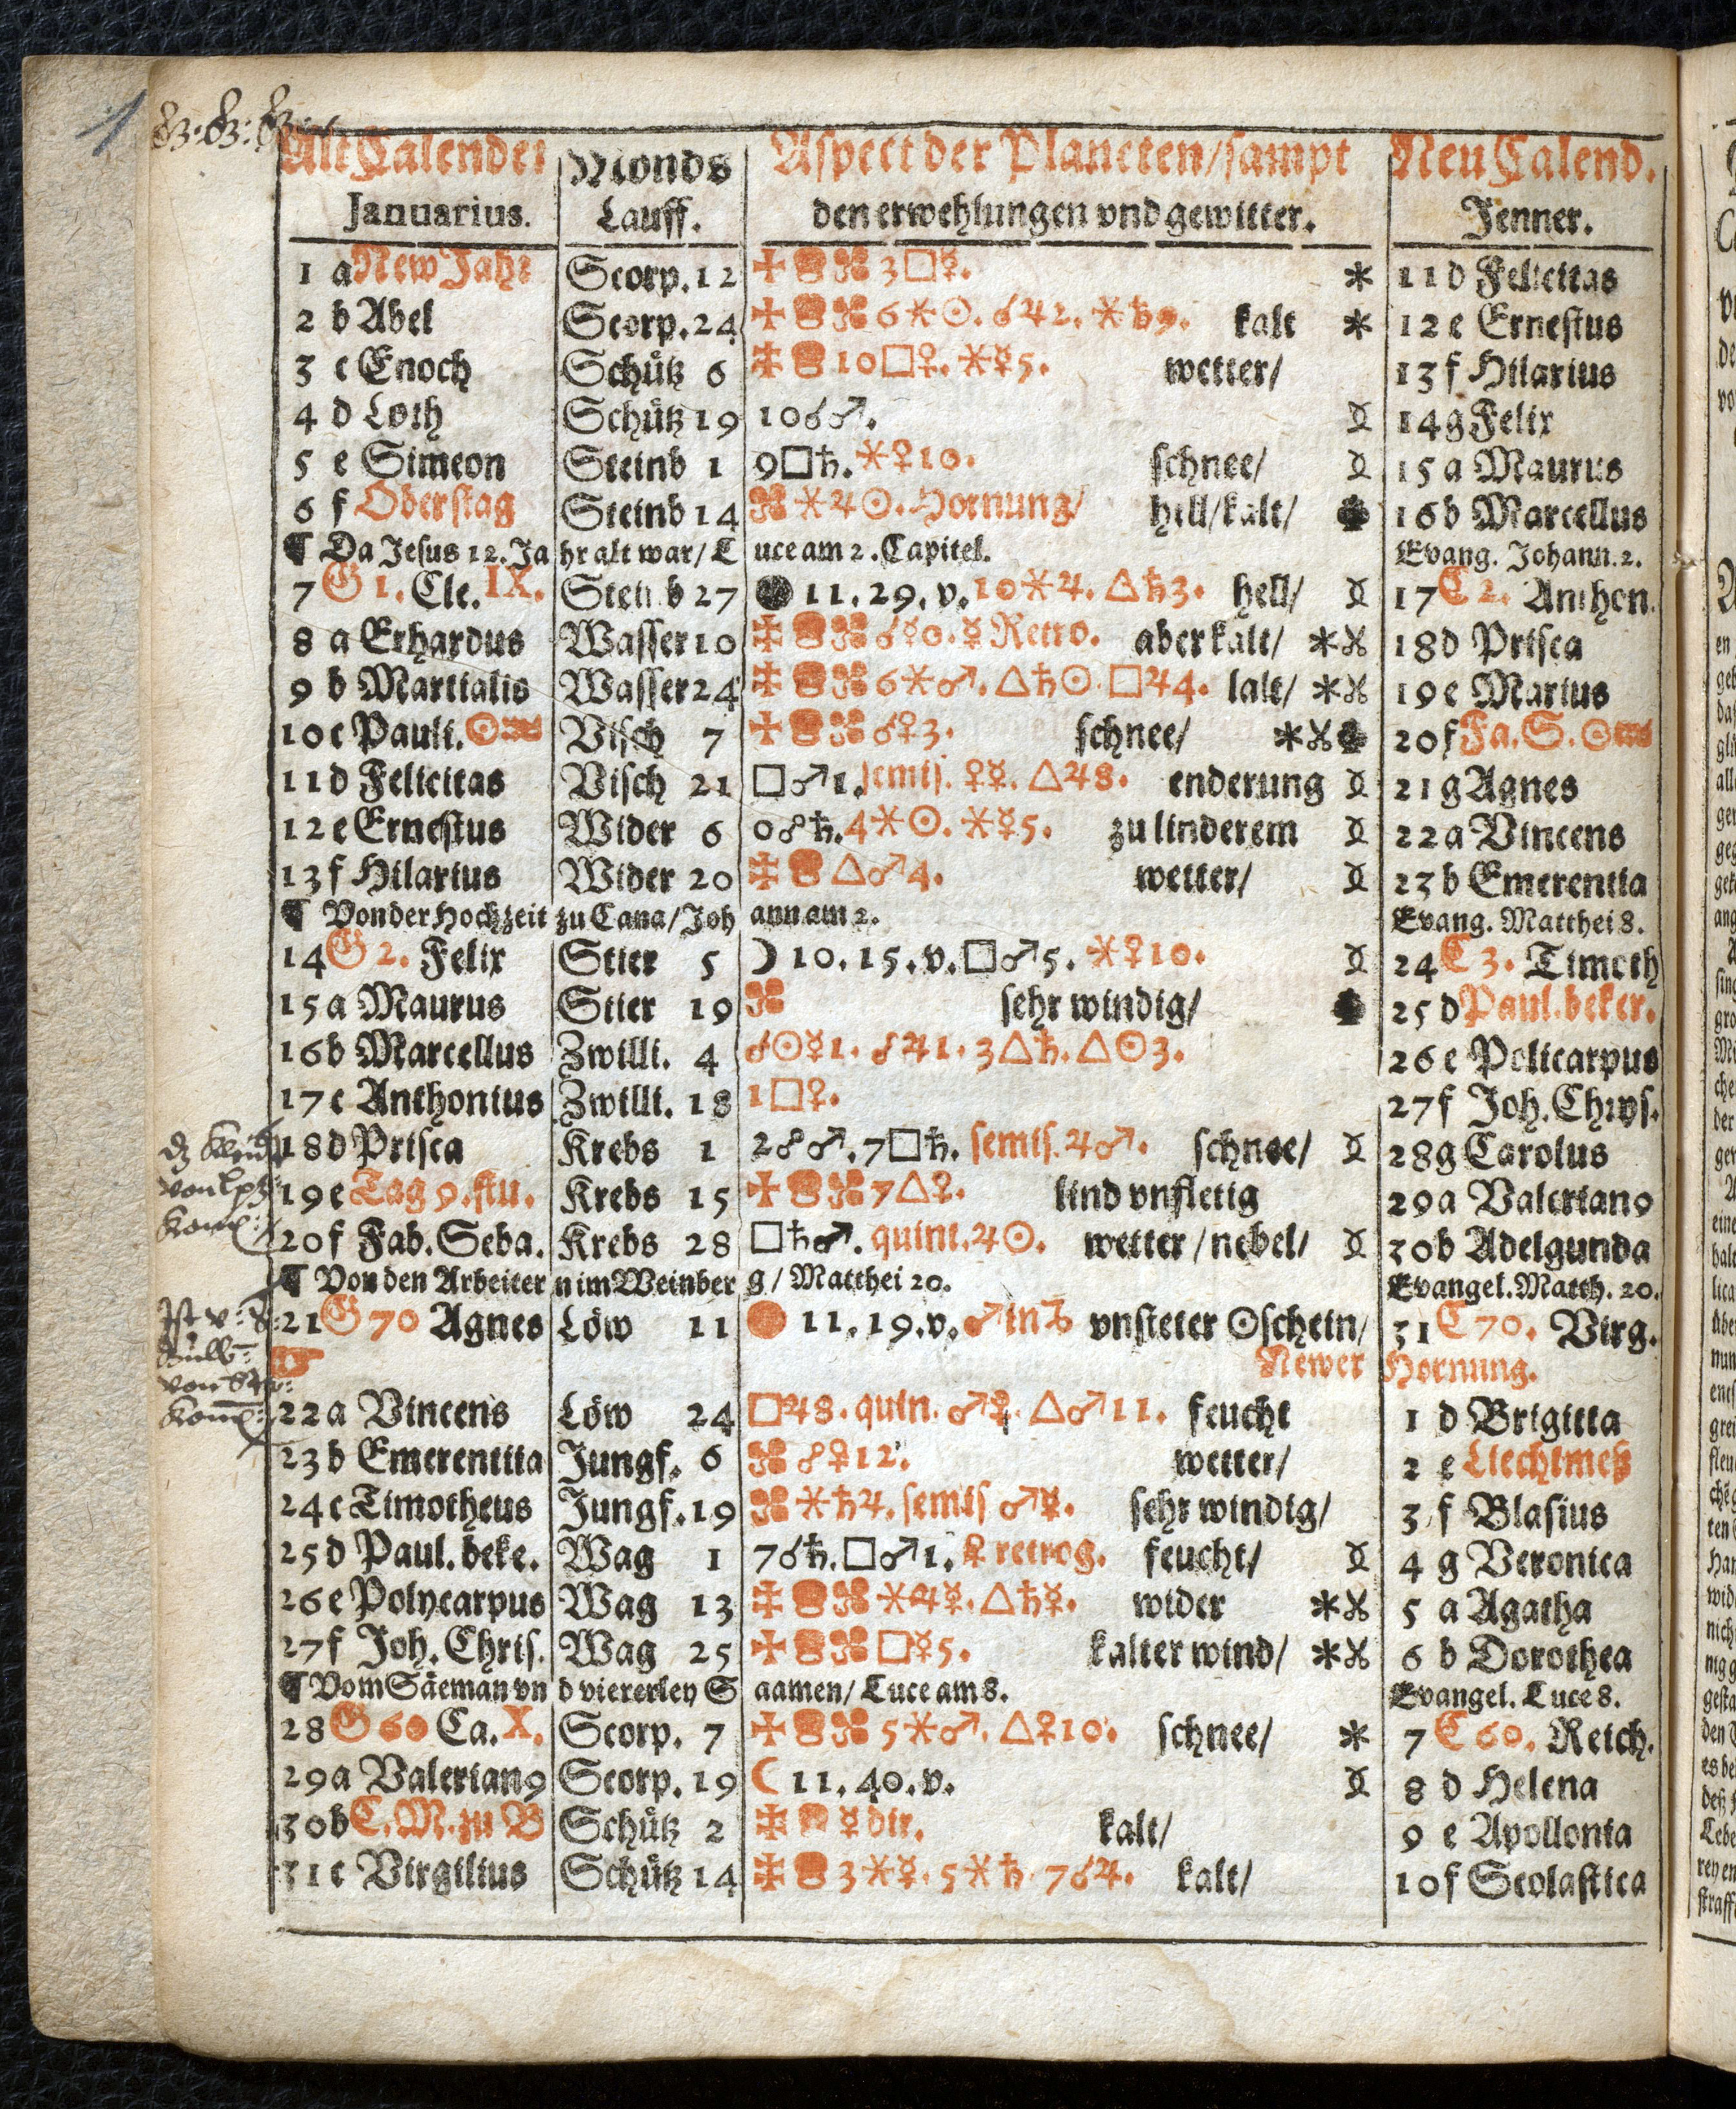 Alt Calender Monds Aspect der Planeten/ sampt Neu Calend.
Januarius. Lauff. den erwehlungen vnd gewitter. Jenner.
1 a New Jahr Scorp. 12 3□☿. * 11 d Felicitas
2 b Abel Scorp. 24 6⚹☉. ☌♃2. ⚹♄9. kalt * 12 e Ernestus
3 c Enoch Schütz 6 10□♀. ⚹☿5. wetter/ 13 f Hilarius
4 d Loth Schütz 19 10☌♂. 14 g Felix
5 e Simeon Steinb 1 9□♄. ⚹♀10. schnee/ 15 a Maurus
6 f Oberstag Steinb 14 ⚹♃☉. Hornung/ hell/kalt/ 16 b Marcellus
¶ Da Jesus 12. Jahr alt war/ Luce am 2. Capitel. Evang. Johann. 2.
7 G 1. Ele. IX. Steinb 27 ● 11. 29. v. 10⚹♃. △♄3. hell/ 17 C 2. Anthon.
8 a Erhardus Wasser 10 ☌☿0. ☿ Retro. aber kalt/ * 18 d Prisca
9 b Martialis Wasser 24 6⚹♂. △♄☉. □♃4. kalt/ * 19 e Marius
10 c Pauli. ☉♒ Visch 7 ☌♀3. schnee/ * 20 f Fa. S. ☉♒
11 d Felicitas Visch 21 □♂1. semis. ♀☿. △♃8. enderung 21 g Agnes
12 e Ernestus Wider 6 0☍♄. 4⚹☉. ⚹☿5. zu linderem 22 a Vincens
13 f Hilarius Wider 20 △♂4. wetter/ 23 b Emerentia
¶ Von der Hochzeit zu Cana/ Johann am 2. Evang. Matthei 8.
14 G 2. Felix Stier 5 ☽ 10. 15. v. □♂5. ⚹♀10. 24 C 3. Timoth
15 a Maurus Stier 19 sehr windig/ 25 d Paul. beker.
16 b Marcellus Zwilli. 4 ☌☉☿1. ☍♃1. 3△♄. △☉3. 26 e Policarpus
17 c Anthonius Zwilli. 18 1□♀. 27 f Joh. Chrys.
18 d Prisca Krebs 1 2☍♂. 7□♄. semis. ♃♂. schnee/ 28 g Carolus
19 e Tag 9. stu. Krebs 15 7△♀. lind vnfletig 29 a Valerian9
20 f Fab. Seba. Krebs 28 □♄♂. quint. ♃☉. wetter/nebel/ 30 b Adelgunda
¶ Von den Arbeitern im Weinberg/ Matthei 20. Evangel. Matth. 20.
21 G 70 Agnes Löw 11 11. 19. v. ♂ in ♑ vnsteter ☉schein/ 31 C 70. Virg.
☞ Newer Hornung.
22 a Vincens Löw 24 □♃8. quin. ♂♀. △♂11. feucht 1 d Brigitta
23 b Emerentiia Jungf. 6 ☍♀12. wetter/ 2 e Liechtmeß
24 c Timotheus Jungf. 19 ⚹♄♃. semis ♂☿. sehr windig/ 3 f Blasius
25 d Paul. beke. Wag 1 7☌♄. □♂1. ♀ retrog. feucht/ 4 g Veronica
26 e Polycarpus Wag 13 ⚹♃☿. △♄☿. wider * 5 a Agatha
27 f Joh. Chris. Wag 25 □☿5. kalter wind/ * 6 b Dorothea
¶ Vom Säeman vnd viererley Saamen/ Luce am 8. Evangel. Luce 8.
28 G 60 Ca. X. Scorp. 7 5⚹♂. △♀10. schnee/ * 7 C 60. Reich.
29 a Valerian9 Scorp. 19 ☾ 11. 40. v. 8 d Helena
30 b C. M. zu B Schütz 2 ☿ dir. kalt/ 9 e Apollonia
31 c Virgilius Schütz 14 3⚹☿. 5⚹♄. 7☌♃. kalt/ 10 f Scolastica